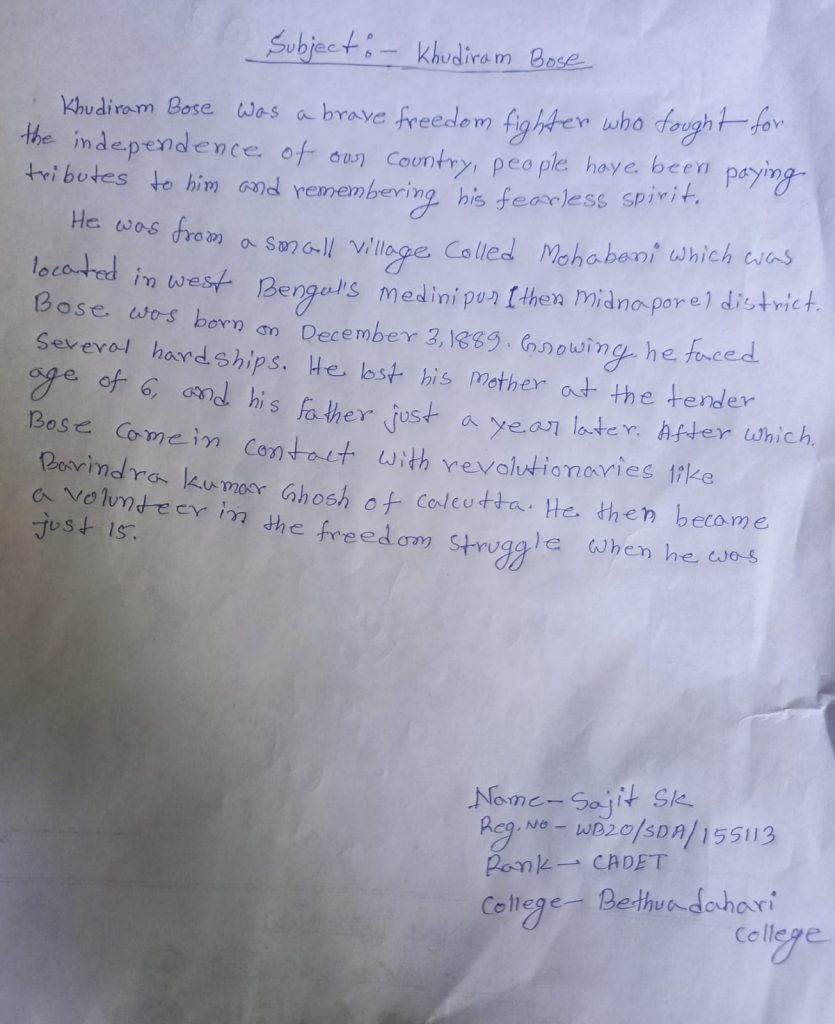 Subject:- Khudiram Bose
Khudiram Bose was a brave freedom fighter who fought for
the independence of our Country, people have been paying
tributes to him and remembering his fearless spirit.
He was from a small village Called Mohabani which was
located in west Bengal's Medinipur [then Midnapore] district.
Bose was born on December 3, 1889. Growing he faced
Several hardships. He lost his mother at the tender
age of 6, and his father just a year later. After which,
Bose came in contact with revolutionaries like
Barindra Kumar Ghosh of Calcutta. He then became
a volunteer in the freedom struggle when he was
just 15.
Name- Sajit Sk
Reg. No - WB20/SDA/155113
Rank - CADET
College- Bethuadahari
College